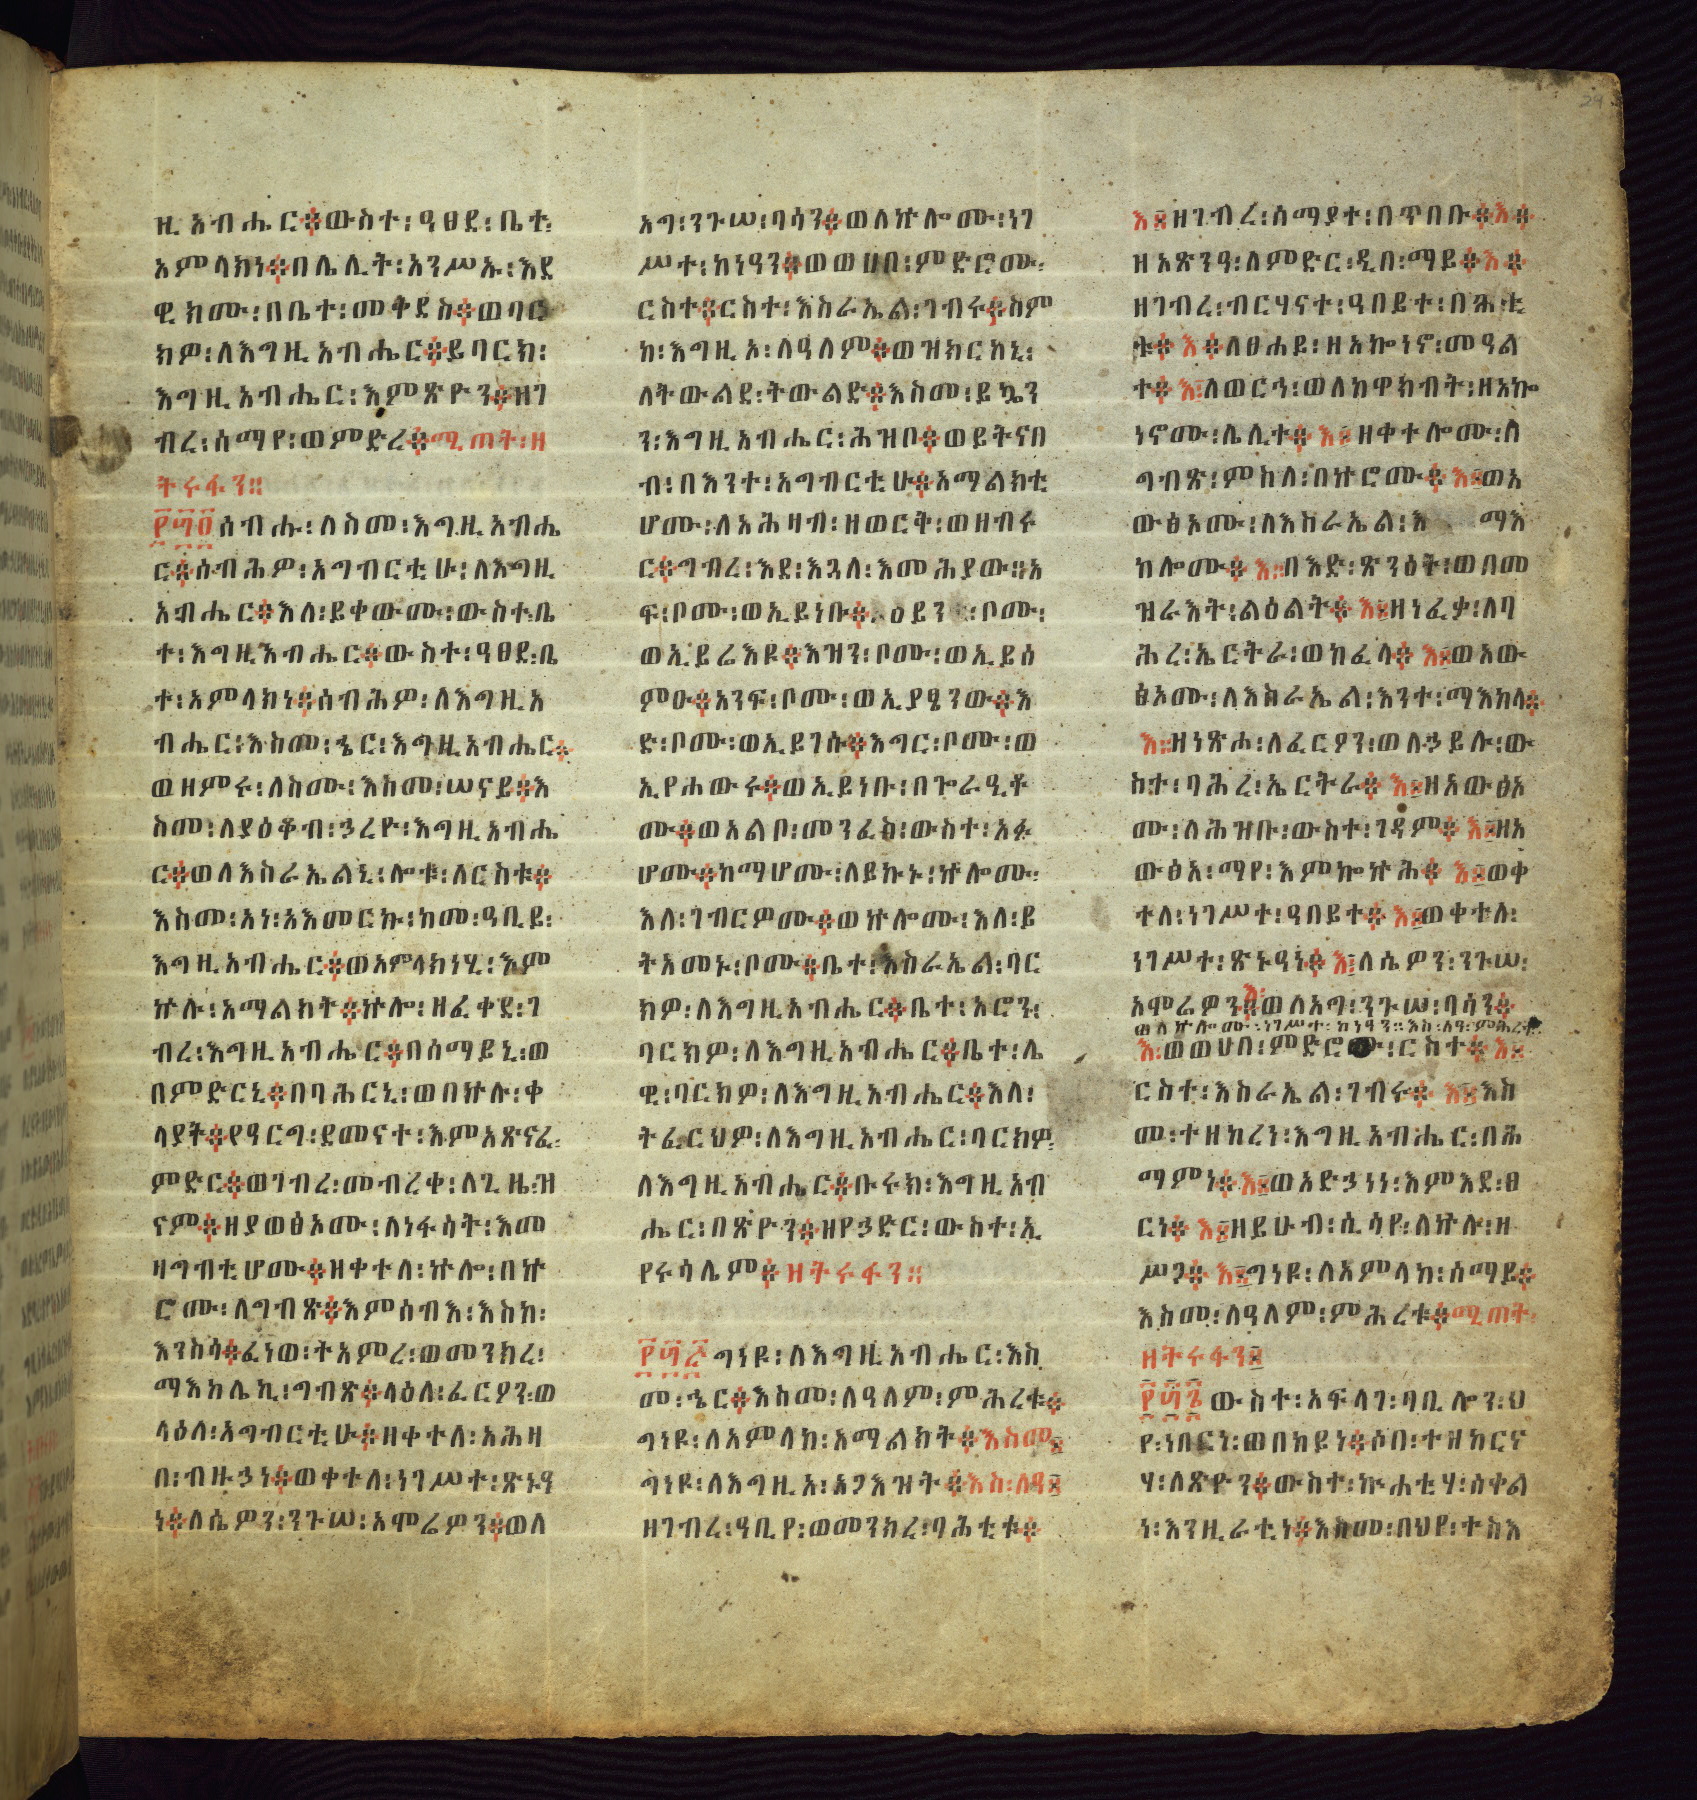 ዚአብሔር፨ውስተ፡ዓፀደ፡ቤተ፡
አምላክነ፨በሌሊት፡አንሥኡ፡እደ
ዊክሙ፡በቤተ፡መቅደስ፨ወባር
ክዎ፡ለእግዚአብሔር፨ይባርክ፡
እግዚአብሔር፡እምጽዮን፨ዘገ
ብረ፡ሰማየ፡ወምድረ፨ሚጠት፡ዘ
ትሩፋን።
፻፴፬ሰብሑ፡ለስመ፡እግዚአብሔ
ር፨ሰብሕዎ፡አግብርቲሁ፡ለእግዚ
አብሔር፨እለ፡ይቀውሙ፡ውስተ፡ቤ
ተ፡እግዚእብሔር፨ውስተ፡ዓፀደ፡ቤ
ተ፡አምላክነ፨ሰብሕዎ፡ለእግዚአ
ብሔር፡እስመ፡ኄር፡እግዚአብሔር፨
ወዘምሩ፡ለስሙ፡እስመ፡ሠናይ፨እ
ስመ፡ለያዕቆብ፡ኃረዮ፡እግዚአብሔ
ር፨ወለእስራኤልኒ፡ሎቱ፡ለርስቱ፨
እስመ፡አነ፡አእመርኩ፡ከመ፡ዓቢይ፡
እግዚአብሔር፨ወአምላክነሂ፡እም
ኵሉ፡አማልክት፨ኵሎ፡ዘፈቀደ፡ገ
ብረ፡እግዚአብሔር፨በሰማይኒ፡ወ
በምድርኒ፨በባሕርኒ፡ወበኵሉ፡ቀ
ላያት፨የዓርግ፡ደመናተ፡እምአጽናፈ፡
ምድር፨ወገብረ፡መብረቀ፡ለጊዜ፡ዝ
ናም፨ዘያወፅኦሙ፡ለነፋሳት፡እመ
ዛግብቲሆሙ፨ዘቀተለ፡ኵሎ፡በኵ
ሮሙ፡ለግብጽ፨እምሰብእ፡እስከ፡
እንስሳ፨ፈነወ፡ትአምረ፡ወመንክረ፡
ማእከሌኪ፡ግብጽ፨ላዕለ፡ፈርዖን፡ወ
ላዕለ፡አግብርቲሁ፨ዘቀተለ፡አሕዛ
በ፡ብዙኃነ፨ወቀተለ፡ነገሥተ፡ጽኑዓ
ነ፨ለሴዎን፡ንጉሠ፡አሞሬዎን፨ወለ
አግ፡ንጉሠ፡ባሳን፨ወለኵሎሙ፡ነገ
ሥተ፡ከነዓን፨ወወሀበ፡ምድሮሙ፡
ርስተ፨ርስተ፡እስራኤል፡ገብሩ፨ስም
ከ፡እግዚአ፡ለዓለም፨ወዝክርከኒ፡
ለትውልደ፡ትውልድ፨እስመ፡ይኴን
ን፡እግዚአብሔር፡ሕዝቦ፨ወይትናበ
ብ፡በእንተ፡አግብርቲሁ፨አማልክቲ
ሆሙ፡ለአሕዛብ፡ዘወርቅ፡ወዘብሩ
ር፨ግብረ፡እደ፡እጓለ፡እመሕያው፨አ
ፍ፡ቦሙ፡ወኢይነቡ፨ዕይን፡ቦሙ፡
ወኢይሬእዩ፨እዝን፡ቦሙ፡ወኢይሰ
ምዑ፨አንፍ፡ቦሙ፡ወኢያፄንው፨እ
ድ፡ቦሙ፡ወኢይገሱ፨እግር፡ቦሙ፡ወ
ኢየሐውሩ፨ወኢይነቡ፡በጕራዒቶ
ሙ፨ወአልቦ፡መንፈስ፡ውስተ፡አፉ
ሆሙ፨ከማሆሙ፡ለይኩኑ፡ኵሎሙ፡
እለ፡ገብርዎሙ፨ወኵሎሙ፡እለ፡ይ
ትአመኑ፡ቦሙ፨ቤተ፡እስራኤል፡ባር
ክዎ፡ለእግዚአብሔር፨ቤተ፡አሮን፡
ባርክዎ፡ለእግዚአብሔር፨ቤተ፡ሌ
ዊ፡ባርክዎ፡ለእግዚአብሔር፨እለ፡
ትፈርህዎ፡ለእግዚአብሔር፡ባርክዎ፡
ለእግዚአብሔር፨ቡሩክ፡እግዚአብ
ሔር፡በጽዮን፨ዘየኃድር፡ውስተ፡ኢ
የሩሳሌም፨ዘትሩፋን።
፻፴፭ግነዩ፡ለእግዚአብሔር፡እስ
መ፡ኄር፨እስመ፡ለዓለም፡ምሕረቱ፨
ግነዩ፡ለአምላከ፡አማልክት፨እስመ፡
ግነዩ፡ለእግዚአ፡አጋእዝት፨እስ፡ለዓ፡
ዘገብረ፡ዓቢየ፡ወመንክረ፡ባሕቲቱ፨
እ፡ዘገብረ፡ሰማያተ፡በጥበቡ፨እ፨
ዘአጽንዓ፡ለምድር፡ዲበ፡ማይ፨እ፨
ዘገብረ፡ብርሃናተ፡ዓበይተ፡በሕቲ
ቱ፨እ፨ለፀሐይ፡ዘአኰነኖ፡መዓል
ተ፨እ፡ለወርኅ፡ወለከዋክብት፡ዘአኰ
ነኖሙ፡ሌሊተ፨እ፡ዘቀተሎሙ፡ለ
ግብጽ፡ምስለ፡በኵሮሙ፨እ፡ወአ
ውፅኦሙ፡ለእስራኤል፡እ ማእ
ከሎሙ፨እ፡በእድ፡ጽንዕት፡ወበመ
ዝራእት፡ልዕልት፨እ፡ዘነፈቃ፡ለባ
ሕረ፡ኤርትራ፡ወከፈላ፨እ፡ወአው
ፅኦሙ፡ለእስራኤል፡እንተ፡ማእከላ፨
እ፡ዘነጽሖ፡ለፈርዖን፡ወለኃይሉ፡ው
ስተ፡ባሕረ፡ኤርትራ፨እ፡ዘአውፅአ
ሙ፡ለሕዝቡ፡ውስተ፡ገዳም፨እ፡ዘአ
ውፅአ፡ማየ፡እምኰኵሕ፨እ፡ወቀ
ተለ፡ነገሥተ፡ዓበይተ፨እ፡ወቀተለ፡
ነገሥተ፡ጽኑዓነ፨እ፡ለሴዎን፡ንጉሠ፡
አሞሬዎን፨እ፡ወለአግ፡ንጉሠ፡ባሳን፨
ወለኵሎሙ፡ነገሥተ፡ከነዓን፨እስ፡ለዓ፡ምሕረቱ፡
እ፡ወወሀበ፡ምድሮሙ፡ርስተ፨እ፡
ርስተ፡እስራኤል፡ገብሩ፨እ፡እስ
መ፡ተዘከረነ፡እግዚአብሔር፡በሕ
ማምነ፨እ፡ወአድኃነነ፡እምእደ፡ፀ
ርነ፨እ፡ዘይሁብ፡ሲሳየ፡ለኵሉ፡ዘ
ሥጋ፨እ፡ግነዩ፡ለአምላከ፡ሰማይ፨
እስመ፡ለዓለም፡ምሕረቱ፨ሚጠት፡
ዘትሩፋን፡
፻፴፮ውስተ፡አፍላገ፡ባቢሎን፡ህ
የ፡ነበርነ፡ወበከይነ፨ሶበ፡ተዘከርና
ሃ፡ለጽዮን፨ውስተ፡ኲሐቲሃ፡ሰቀል
ነ፡እንዚራቲነ፨እስመ፡በህየ፡ተስእ